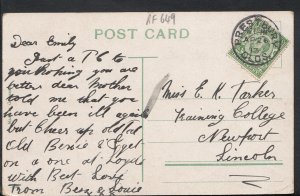 RF 649
POST CARD
Dear Emily
Just a P C to
you hoping you are
better dear Mother
told me that you
have been ill again
but Cheer up old
Old Bernie &
on a one at
With Best Love
From & Louie
Miss E. K. Tarker
Training College
Newport
Lincoln